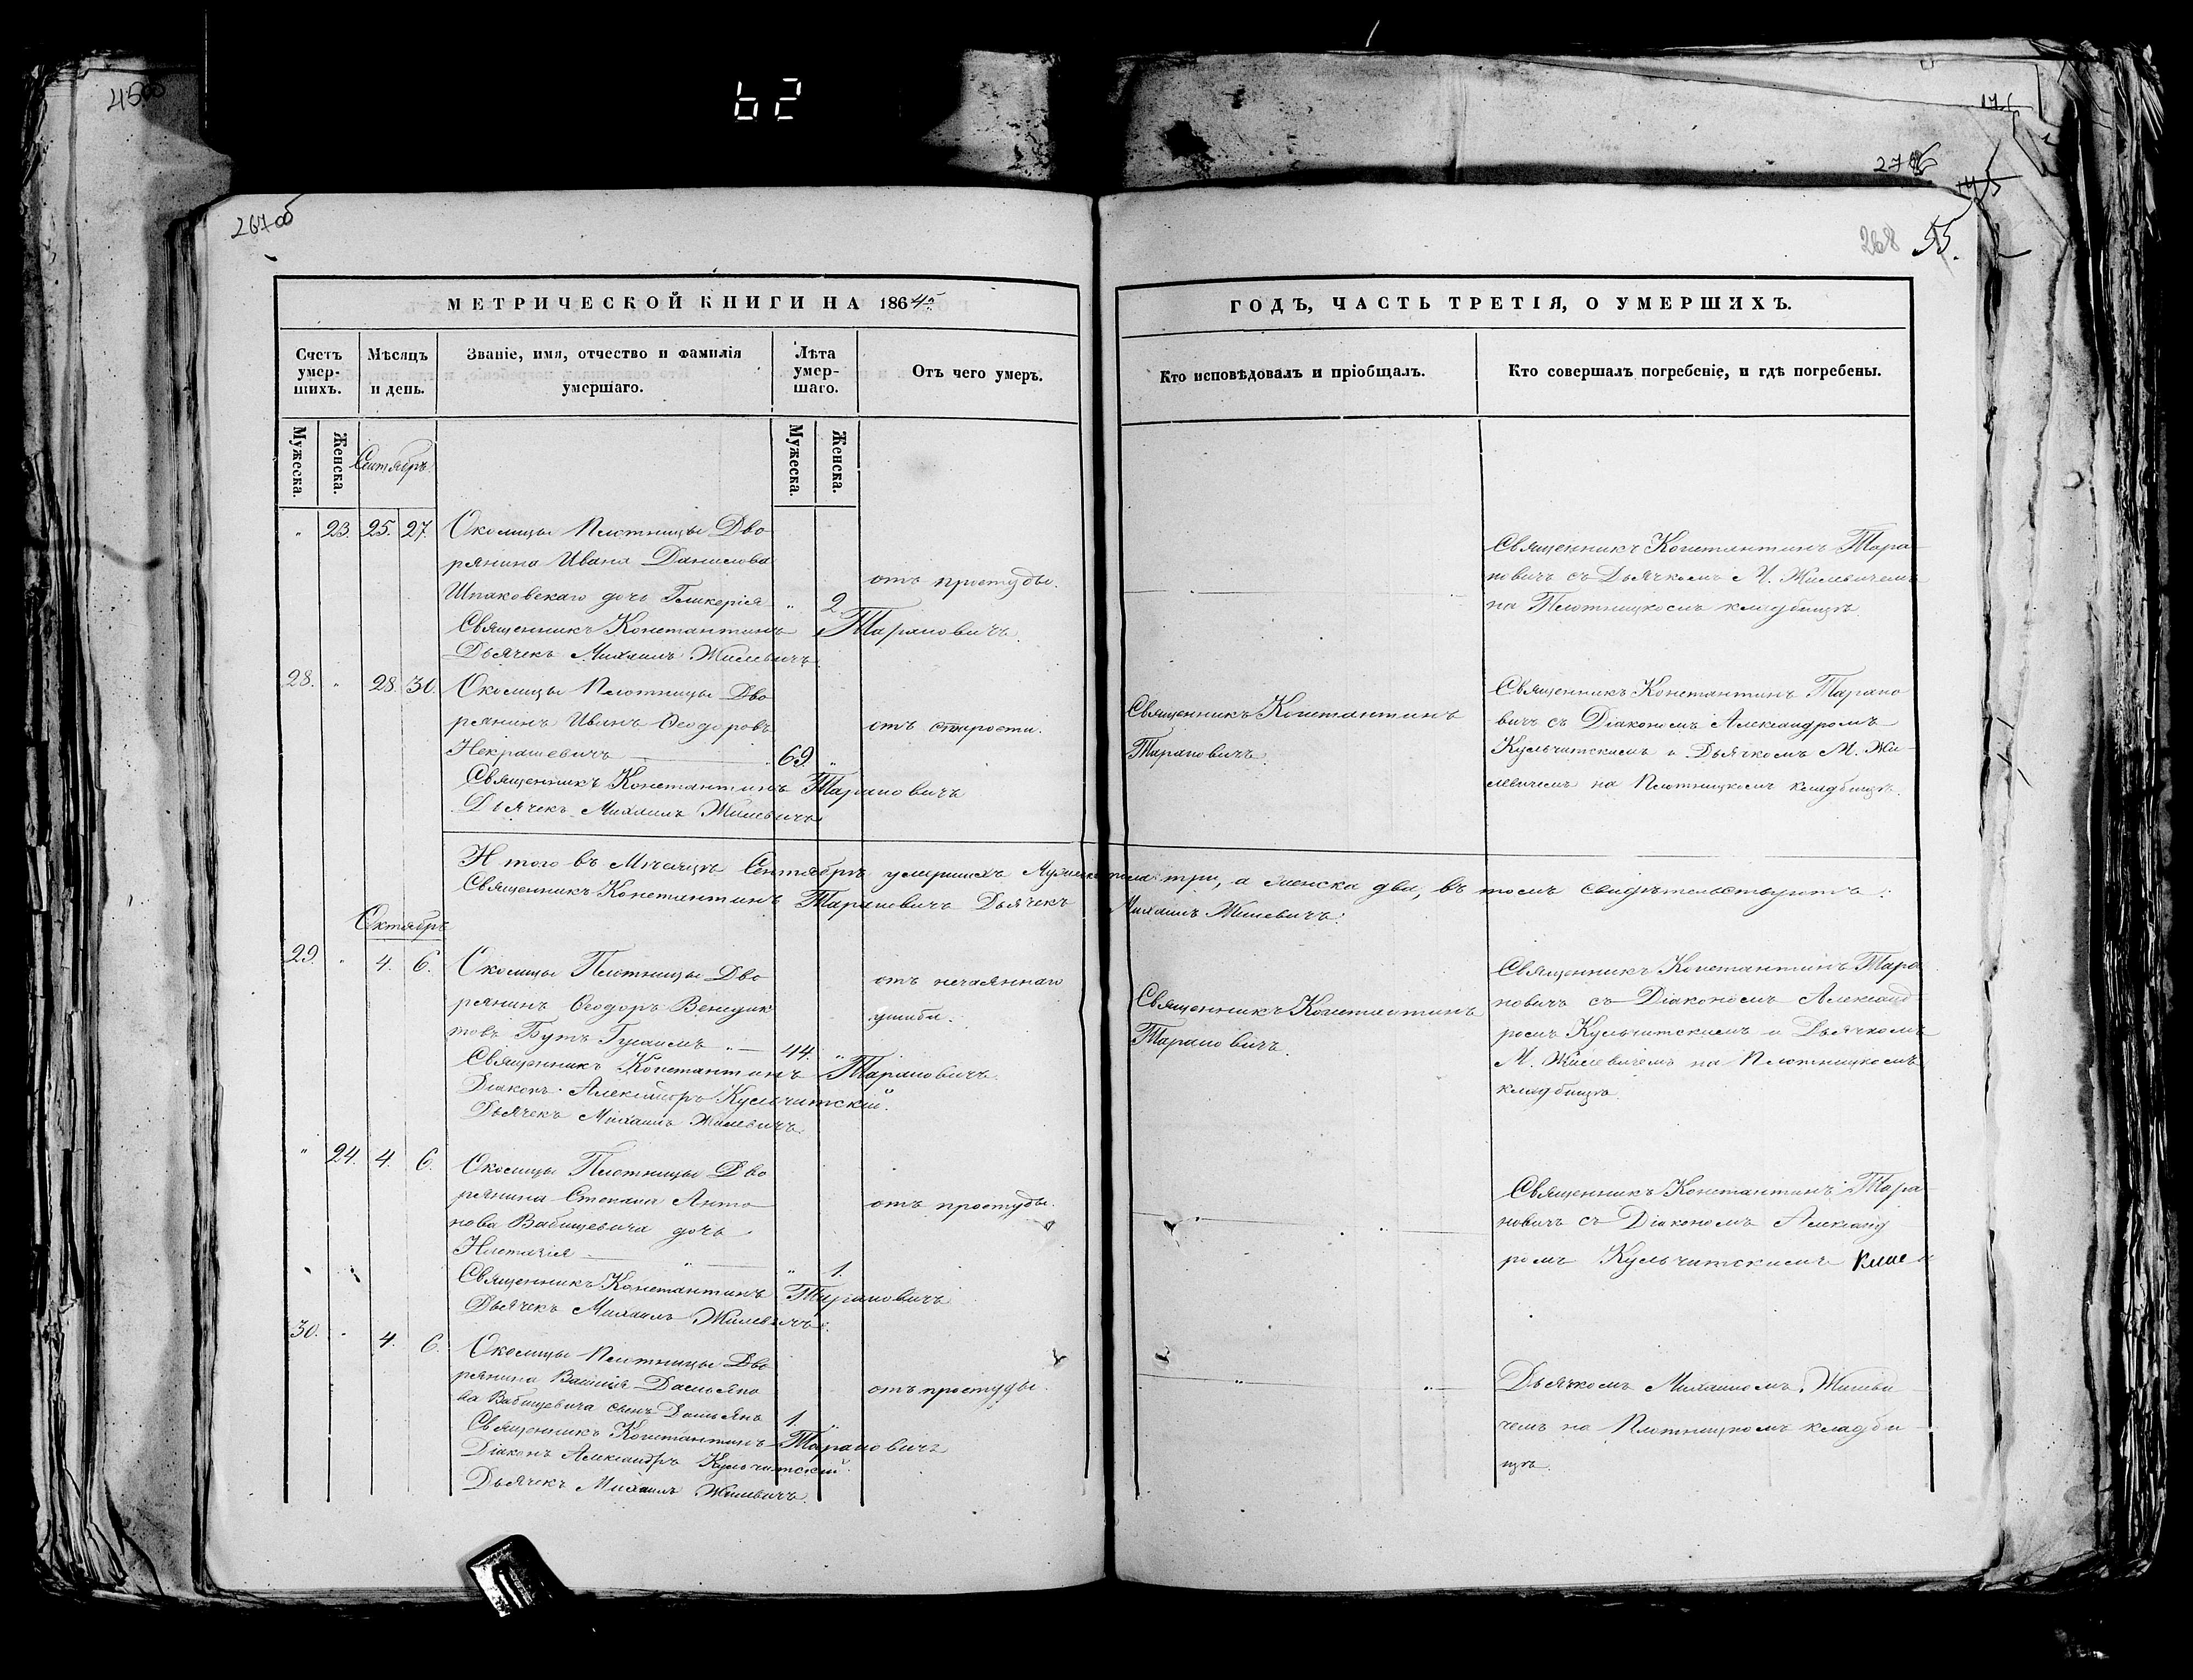 62
45об
267об
276
268
55.
МЕТРИЧЕСКОЙ КНИГИ НА 1864й
ГОДЪ, ЧАСТЬ ТРЕТІЯ, О УМЕРШИХЪ.
Счетъ умер-шихъ.
Мѣсяцъ и день.
Званіе, имя, отчество и фамилія умершаго.
Лѣта умер-шаго.
Отъ чего умеръ.
Кто исповѣдовалъ и пріобщалъ.
Кто совершалъ погребеніе, и гдѣ погребены.
Мужеска.
Женска.
Мужеска.
Женска.
Сентябрь.
" 23. 25. 27.
Околицы Плотницы Дво
рянина Ивана Данилова
Шпаковскаго дочь Гликерія " 2
Священникъ Константинъ Тарановичъ.
Дьячекъ Михаилъ Жилевичъ.
отъ простуды.
Священникъ Константинъ Тара
новичъ съ Дьячкомъ М. Жилевичемъ
на Плотницкомъ кладбищѣ.
28. " 28. 30.
Околицы Плотницы Дво
рянинъ Иванъ Ѳеодоровъ
Некрашевичъ 69. "
Священникъ Константинъ Тарановичъ
Дьячекъ Михаилъ Жилевичъ
отъ старости.
Священникъ Константинъ
Тарановичъ.
Священникъ Константинъ Тарано
вичъ съ Діакономъ Александромъ
Кульчитскимъ и Дьячкомъ М. Жи-
левичемъ на Плотницкомъ кладбищѣ.
Итого въ Мѣсяцѣ Сентябрѣ умершихъ Мужеска пола три, а женска два, въ томъ свидѣтельствуютъ:
Священникъ Константинъ Тарановичъ Дьячекъ Михаилъ Жилевичъ.
Октябрь
29. " 4. 6.
Околицы Плотницы Дво
рянинъ Ѳеодоръ Венедик
товъ Бутъ Гусаимъ " 44. "
Священникъ Константинъ Тарановичъ.
Діаконъ Александръ Кульчитскій.
Дьячекъ Михаилъ Жилевичъ.
отъ нечаяннаго
ушиба.
Священникъ Константинъ
Тарановичъ.
Священникъ Константинъ Тара
новичъ съ Діакономъ Александ
ромъ Кульчитскимъ и Дьячкомъ
М. Жилевичемъ на Плотницкомъ
кладбищѣ.
" 24. 4. 6.
Околицы Плотницы Дво
рянина Степана Анто
нова Вабищевича дочь
Настасія " 1.
Священникъ Константинъ Тарановичъ
Дьячекъ Михаилъ Жилевичъ.
отъ простуды.
Священникъ Константинъ Тара
новичъ съ Діакономъ Александ
ромъ Кульчитскимъ
30. " 4. 6.
Околицы Плотницы Дво
рянина Василія Дамьяно
ва Вабищевича сынъ Дамьянъ 1. "
Священникъ Константинъ Тарановичъ
Діаконъ Александръ Кульчитскій.
Дьячекъ Михаилъ Жилевичъ.
отъ простуды.
Дьячкомъ Михаиломъ Жилеви
чемъ на Плотницкомъ кладби
щѣ.